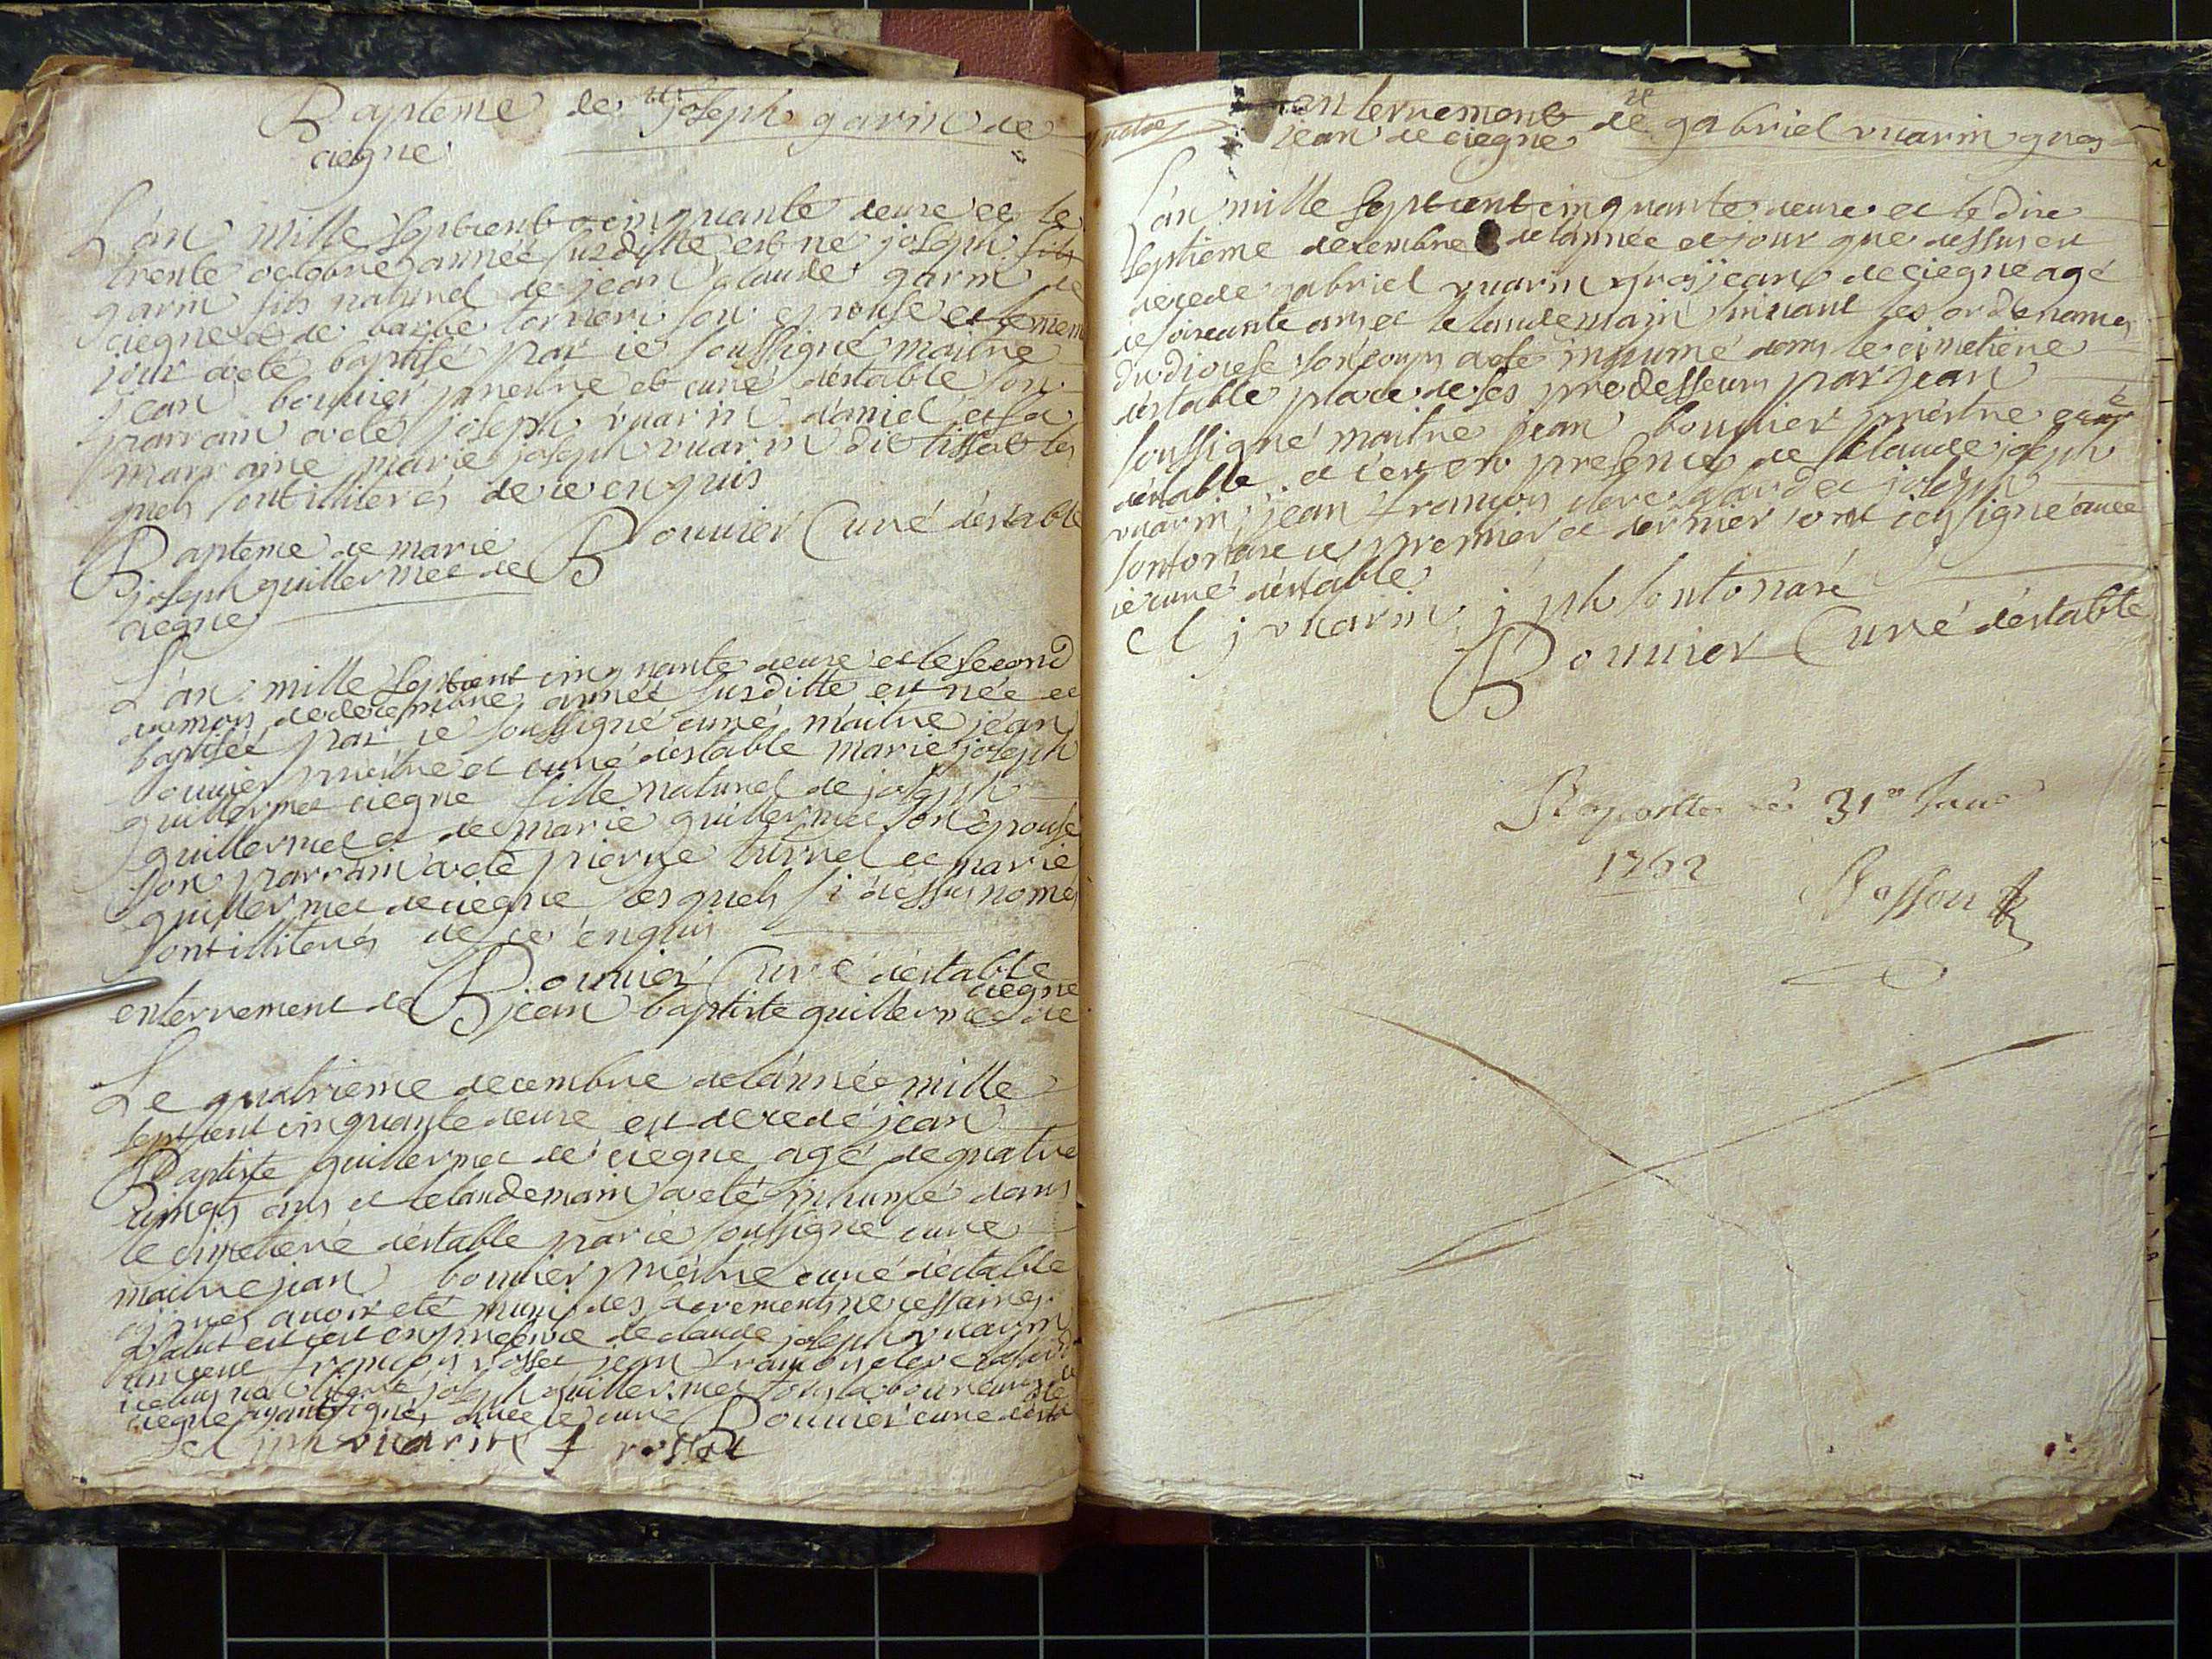 Bapteme de joseph garin de
ciegne
L'an mille septcent cinquante deuxe et le
trente octobre année susditte est né joseph fils
garin fils naturel de jean claude garin de
ciegne et de barbe tornieri son epouse et le mem
jour a eté baptisé par ie soussigné maitre
jean bouvier prestre et curé d'estable son
parrain a eté joseph vuarin daniel et sa
marraine marie joseph vuarin dit tissot les
quels sont illiterés de ce enquis
Bouvier Curé d'estable
Bapteme de marie
joseph guillermet de
ciegne
L'an mille septcent cinquante deuxe et le second
du mois de decembre année susditte est née et
baptisée par ie soussigné curé maitre jean
bouvier prestre et curé d'estable marie joseph
guillermet ciegne fille naturel de joseph
guillermet et de marie guillermet son epouse
son parrain a eté pierre turrel et marie
guillermet de ciegne les quels si dessus només
sont illiterés de ce enquis
Bouvier Curé d'estable
enterrement de jean baptiste guillermet de
ciegne
Le quatrieme decembre de l'année mille
septcent cinquante deuxe est decedé jean
Baptiste guillermet de ciegne agé de quatre
vingts ans et le landemain a eté inhumé dans
le cimetiere d'estable par ie soussigné curé
maitre jean bouvier prestre curé d'estable
apres avoir eté muni des sacrements necessaires
a salut et c'est en presence de claude joseph vuarin
vincent françois rosset jean françois clerc
joseph guillermet tous laboureurs de
ciegne ayant signé avec ie curé Bouvier curé d'esta
ble
cl jph vuarin f rosset
enterrement de gabriel vuarin gros
jean de ciegne
L'an mille septcent cinquante deuxe et le dixe
septieme decembre de l'année et jour que dessus est
decede gabriel vuarin grosjean de ciegne agé
de soixante ans et le landemain suivant les ordonances
du diocese son corps a eté inhumé dans le cimetiere
d'estable place de ses predesseurs par jean
soussigné maitre jean bouvier prestre curé
d'estable et c'est en presence de claude joseph
vuarin jean françois clerc et joseph
fontonare ce premier et dernier ont icy signé avec
ie curé d'estable
cl j vuarin j ph fontonaré
Bouvier Curé d'estable
31